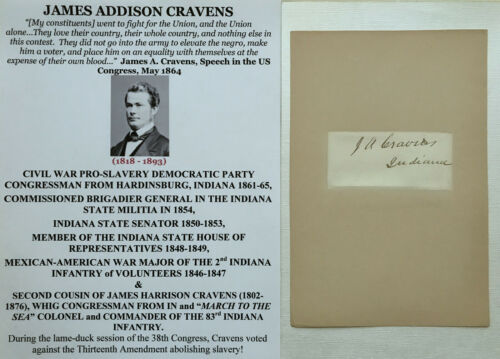 JAMES ADDISON CRAVENS
"[My constituents] went to fight for the Union, and the Union
alone...They love their country, their whole country, and nothing else in
this contest. They did not go into the army to elevate the negro, make
him a voter, and place him on an equality with themselves at the
expense of their own blood..." James A. Cravens, Speech in the US
Congress, May 1864
(1818 - 1893)
CIVIL WAR PRO-SLAVERY DEMOCRATIC PARTY
CONGRESSMAN FROM HARDINSBURG, INDIANA 1861-65,
COMMISSIONED BRIGADIER GENERAL IN THE INDIANA
STATE MILITIA IN 1854,
INDIANA STATE SENATOR 1850-1853,
MEMBER OF THE INDIANA STATE HOUSE OF
REPRESENTATIVES 1848-1849,
MEXICAN-AMERICAN WAR MAJOR OF THE 2nd INDIANA
INFANTRY of VOLUNTEERS 1846-1847
&
SECOND COUSIN OF JAMES HARRISON CRAVENS (1802-
1876), WHIG CONGRESSMAN FROM IN and "MARCH TO THE
SEA" COLONEL and COMMANDER OF THE 83rd INDIANA
INFANTRY.
During the lame-duck session of the 38th Congress, Cravens voted
against the Thirteenth Amendment abolishing slavery!
J A Cravens
Indiana